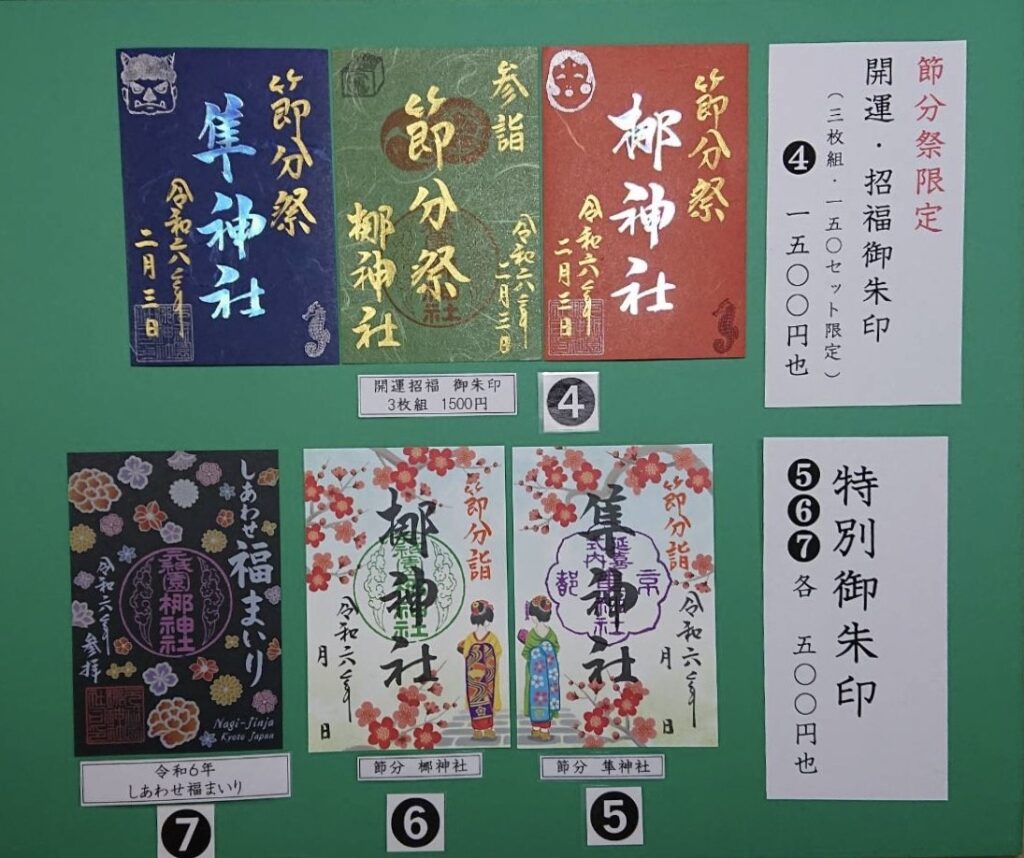 節分祭限定
開運・招福御朱印
（三枚組・一五〇セット限定）
❹ 一五〇〇円也
節分祭
梛神社
令和六年
二月三日
参詣
節分祭
梛神社
令和六年
二月三日
節分祭
隼神社
令和六年
二月三日
開運招福 御朱印
3枚組 1500円
❹
特別御朱印
❺❻❼各 五〇〇円也
節分詣
隼神社
延喜
式内
隼神社
京都
令和六年
月 日
節分 隼神社
❺
節分詣
梛神社
令和六年
月 日
節分 梛神社
❻
しあわせ
福まいり
元祇園梛神社
令和六年
参拝
Nagi-Jinja
Kyoto Japan
令和6年
しあわせ福まいり
❼